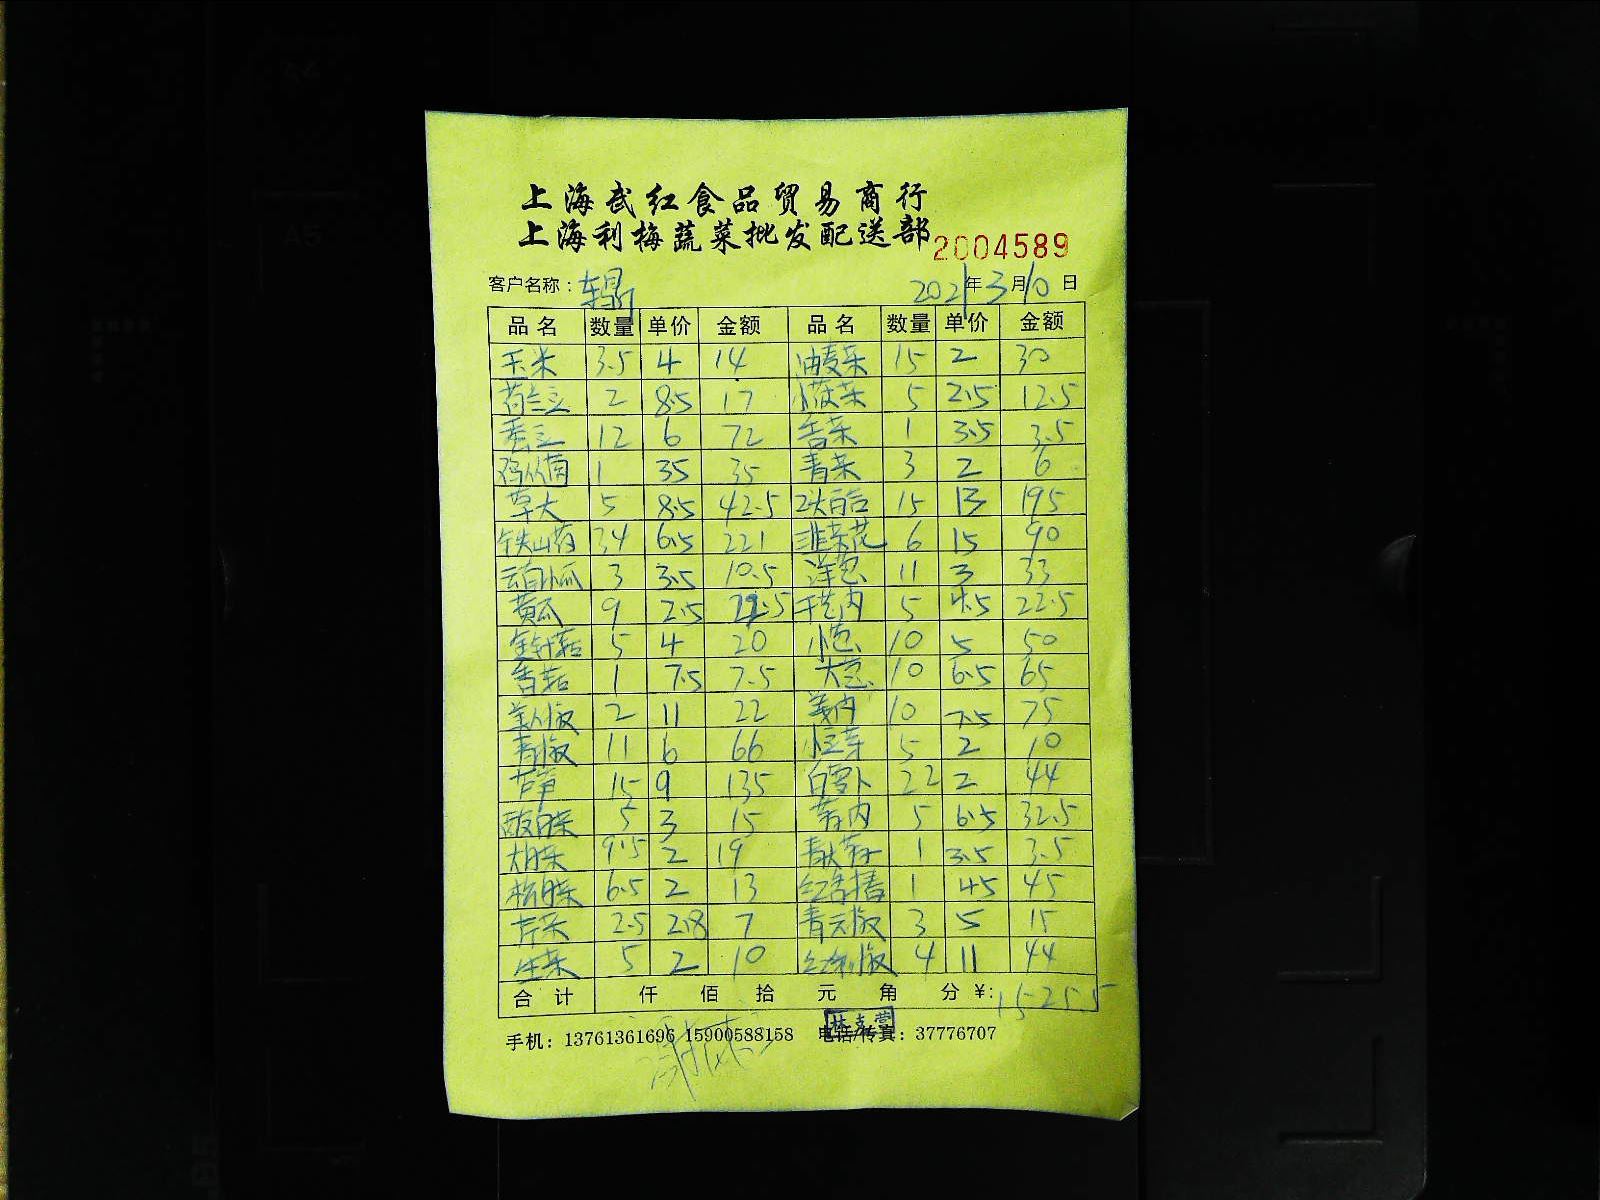 上海武红食品贸易商行
上海利梅蔬菜批发配送部 2004589
客户名称: 2021年3月10日
品名 数量 单价 金额 品名 数量 单价 金额
玉米 3.5 4 14 油麦菜 15 2 30
荷兰豆 2 8.5 17 小菠菜 5 2.5 12.5
蚕豆 12 6 72 1 3.5 3.5
鸡从菌 1 35 35 青菜 3 2 6
草大 5 8.5 42.5 2头百合 15 13 195
铁山药 34 6.5 221 韭菜花 6 15 90
3 3.5 10.5 洋葱 11 3 33
黄瓜 9 2.5 22.5 干葱肉 5 4.5 22.5
金针菇 5 4 20 小葱 10 5 50
香菇 1 7.5 7.5 大葱 10 6.5 65
美人椒 2 11 22 姜肉 10 7.5 75
青椒 11 6 66 小豆芽 5 2 10
芦笋 15 9 135 白萝卜 22 2 44
5 3 15 5 6.5 32.5
大白菜 9.5 2 19 1 3.5 3.5
6.5 2 13 红香椿 1 45 45
芹菜 2.5 2.8 7 3 5 15
生菜 5 2 10 4 11 44
合计 仟 佰 拾 元 角 分 ¥: 1525.5
手机: 13761361696 15900588158 电话/传真: 37776707